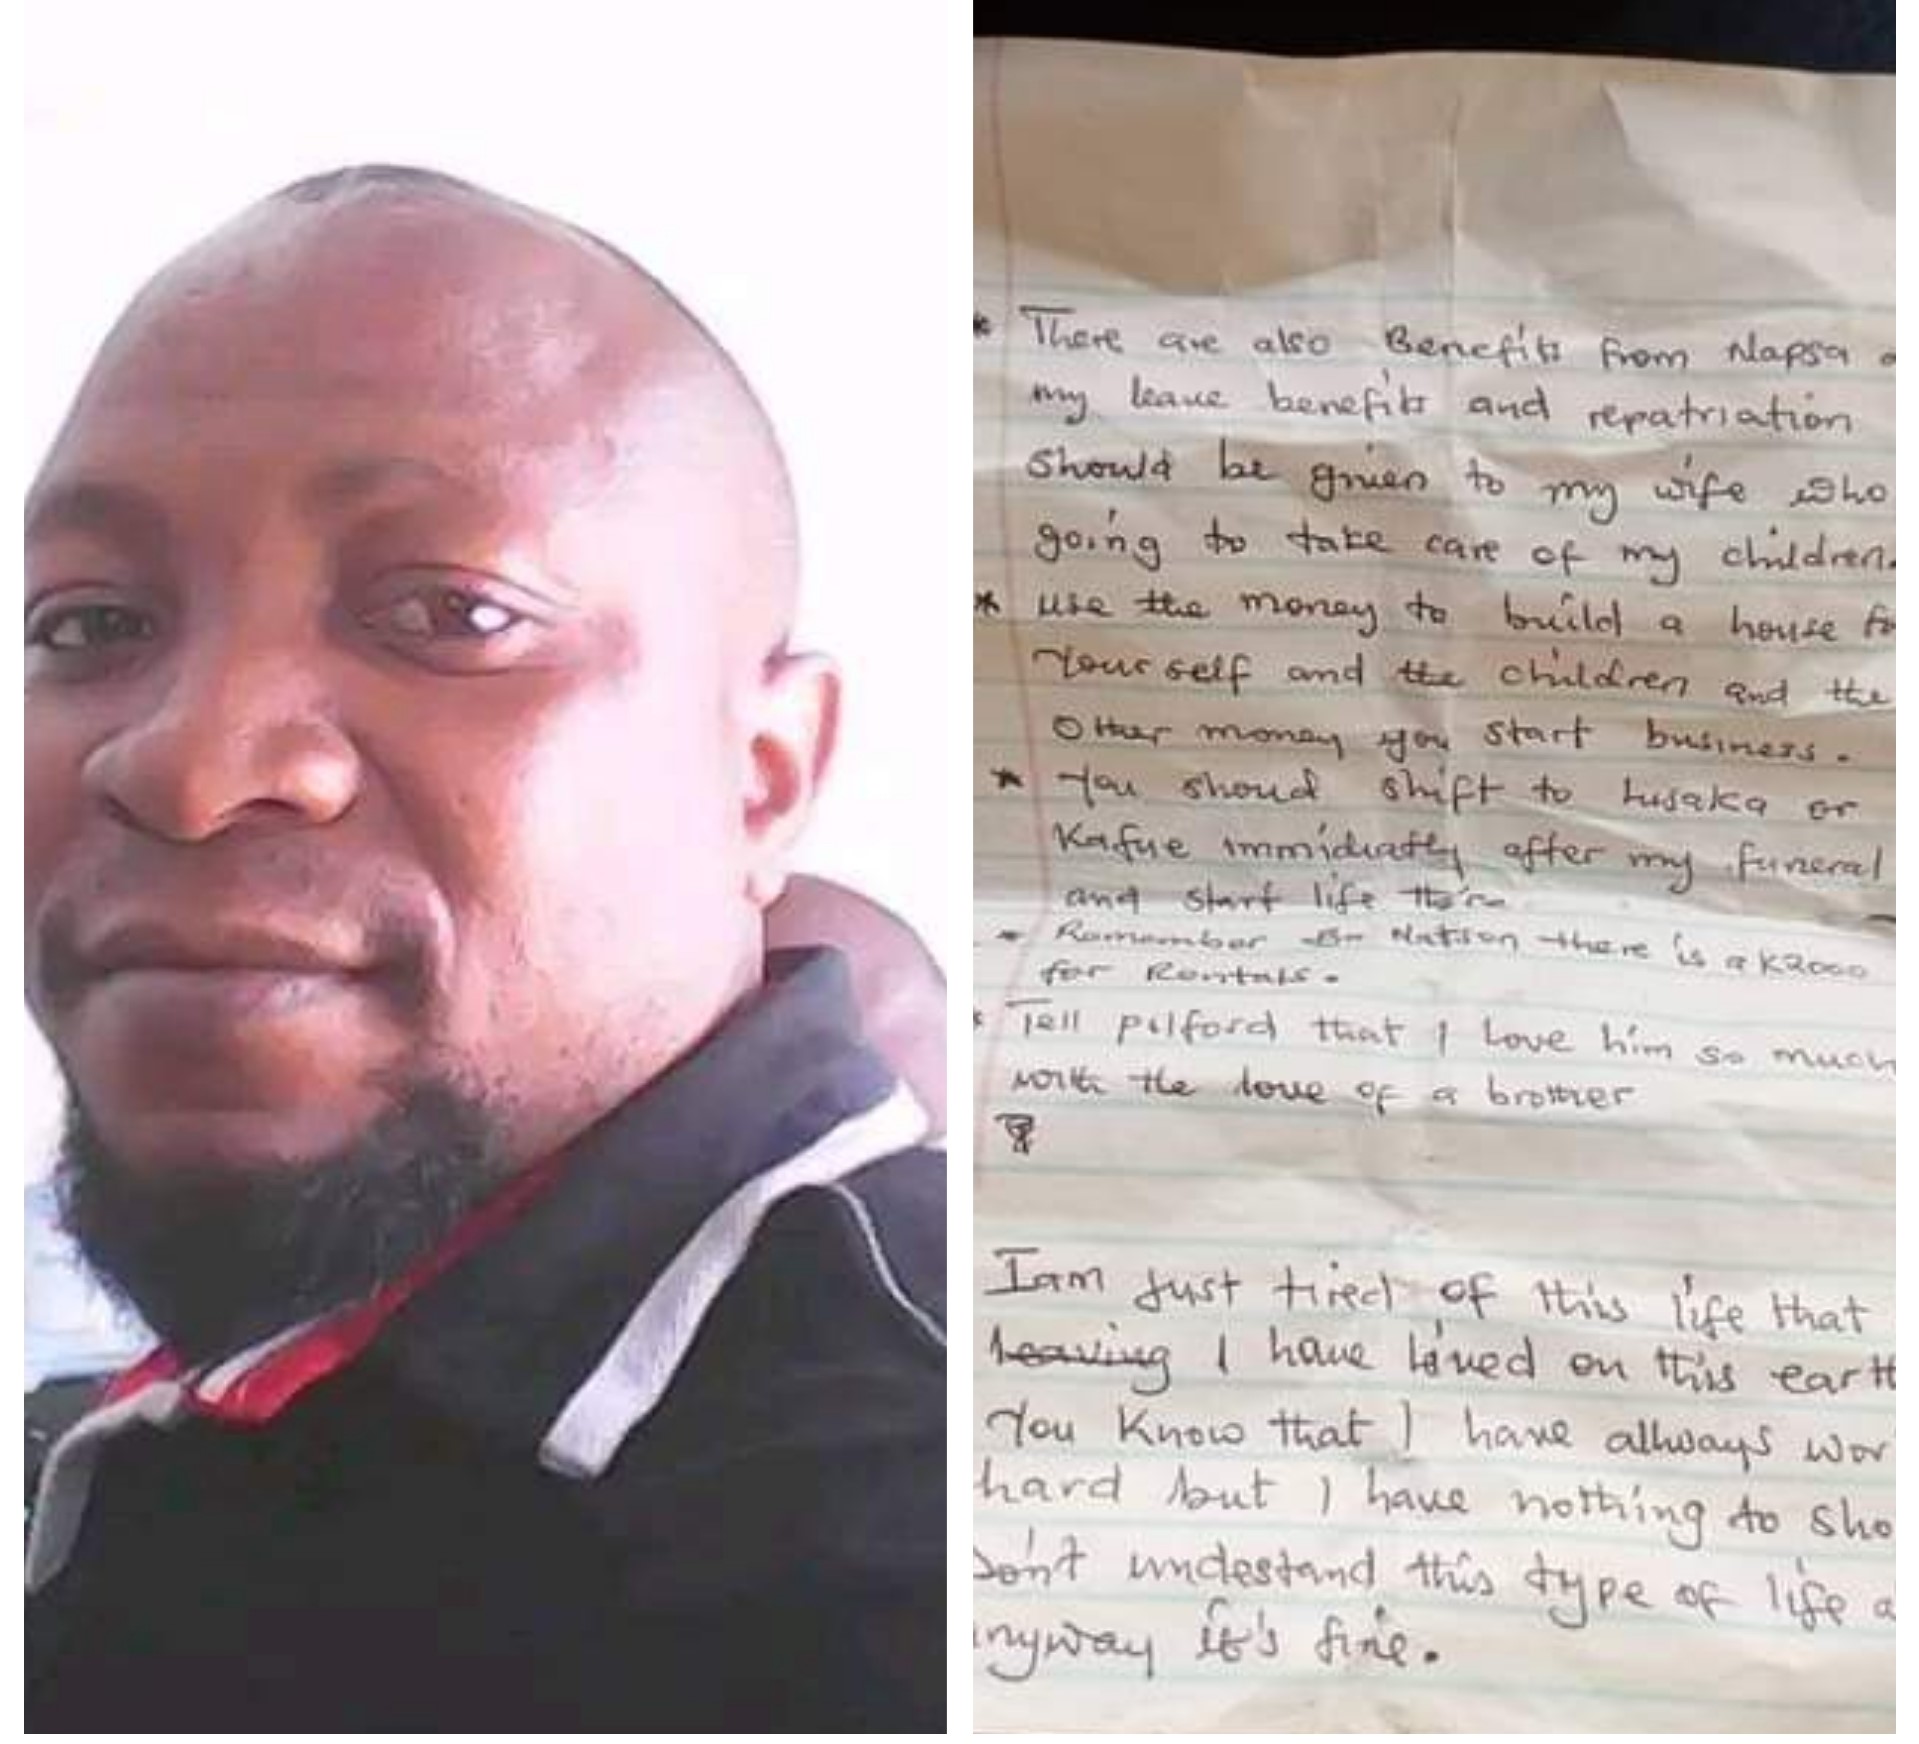 * There are also Benefits from Napsa
my leave benefits and repatriation
should be given to my wife who
going to take care of my children.
* use the money to build a house for
Your self and the children and the
Other money you start business.
* You shoud shift to Lusaka or
Kafue immidiatly after my funeral
and start life there
* Remember Br Natson there is a K2000
for Rentals.
* Tell pilford that I Love him so much
with the love of a brother
I am just tired of this life that
leaving I have lived on this earth
You Know that I have allways wor
hard but I have nothing to sho
Don't undestand this type of life a
anyway it's fine.